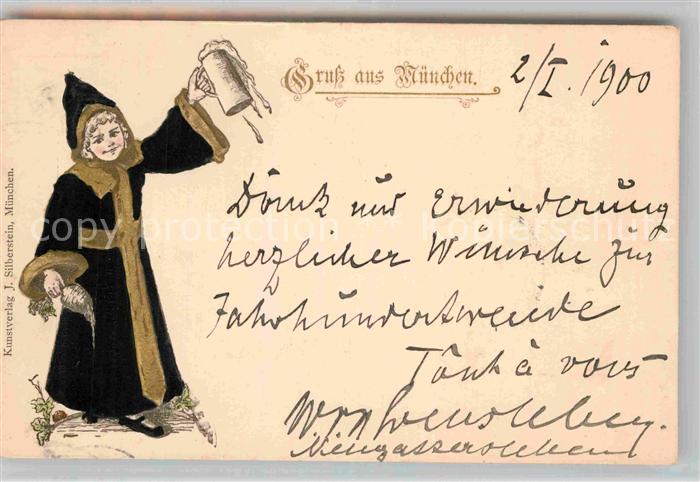 Gruß aus München.
2/I. 1900
Dank und Erwiederung
herzlicher Wünsche zur
Jahrhundertwende
Tout à vous
Neugattersleben
Kunstverlag J. Silberstein, München.
copy protection Kopierschutz